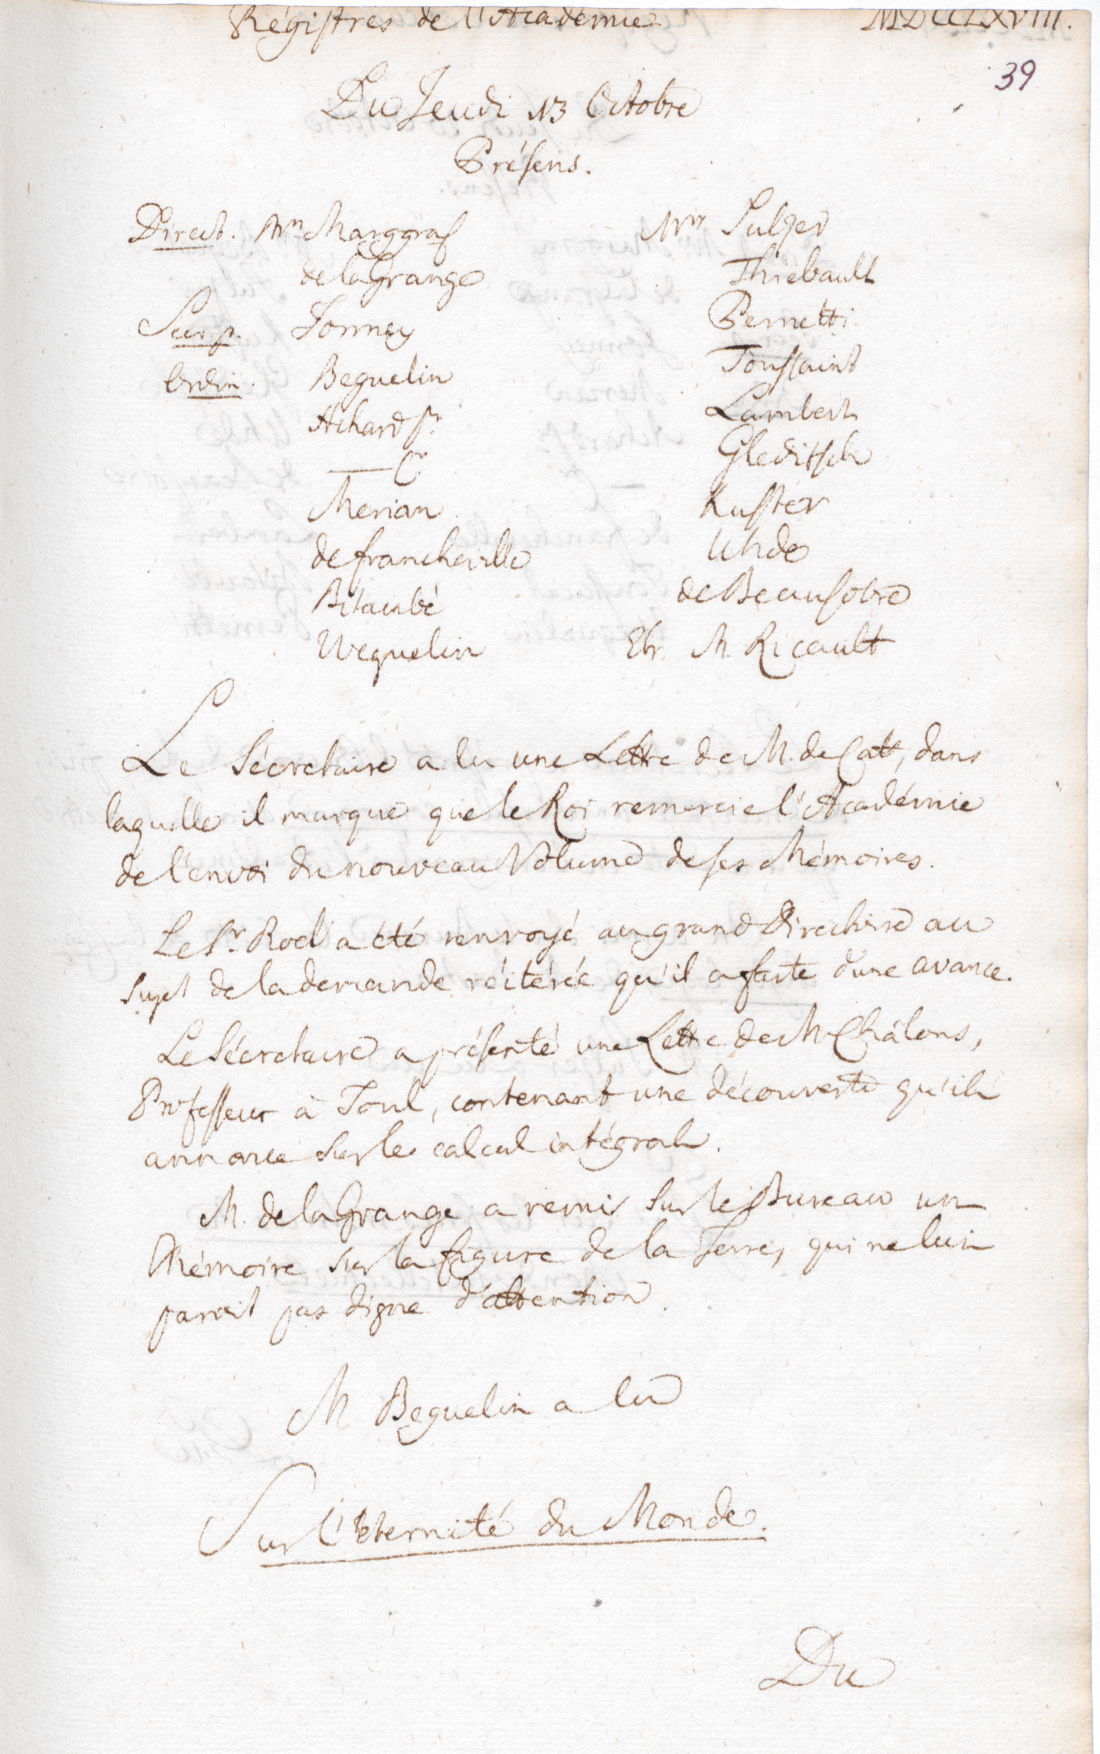 Régistres de l'Académie MDCCLXVIII.
39
Du Jeudi 13 Octobre
Présens.
Direct. Mrs Marggraf Mrs Sulzer
de la Grange Thiebault
Formey Pernetti
Ordin. Beguelin Toussaint
Achard Sr. Lambert
—— Cr Gleditsch
Merian Kuster
de Francheville Uhde
Bitaubé de Beausobre
Weguelin Etr. M. Ricault
Le Sécretaire a lu une Lettre de M. de Catt, dans
laquelle il marque que le Roi remercie l'Académie
de l'envoi du nouveau Volume de ses Mémoires.
Le Sr. Rodi a été renvoyé au grand Directoire au
sujet de la demande réitérée qu'il a faite d'une avance.
Le Sécretaire a présenté une Lettre de M. Châlons,
Professeur à Toul, contenant une découverte qu'il
annonce sur le calcul intégral.
M. de la Grange a remis sur le Bureau un
Mémoire sur la figure de la Terre, qui ne lui
paroit pas digne d'attention.
M Beguelin a lu
Sur l'Eternité du Monde.
Du